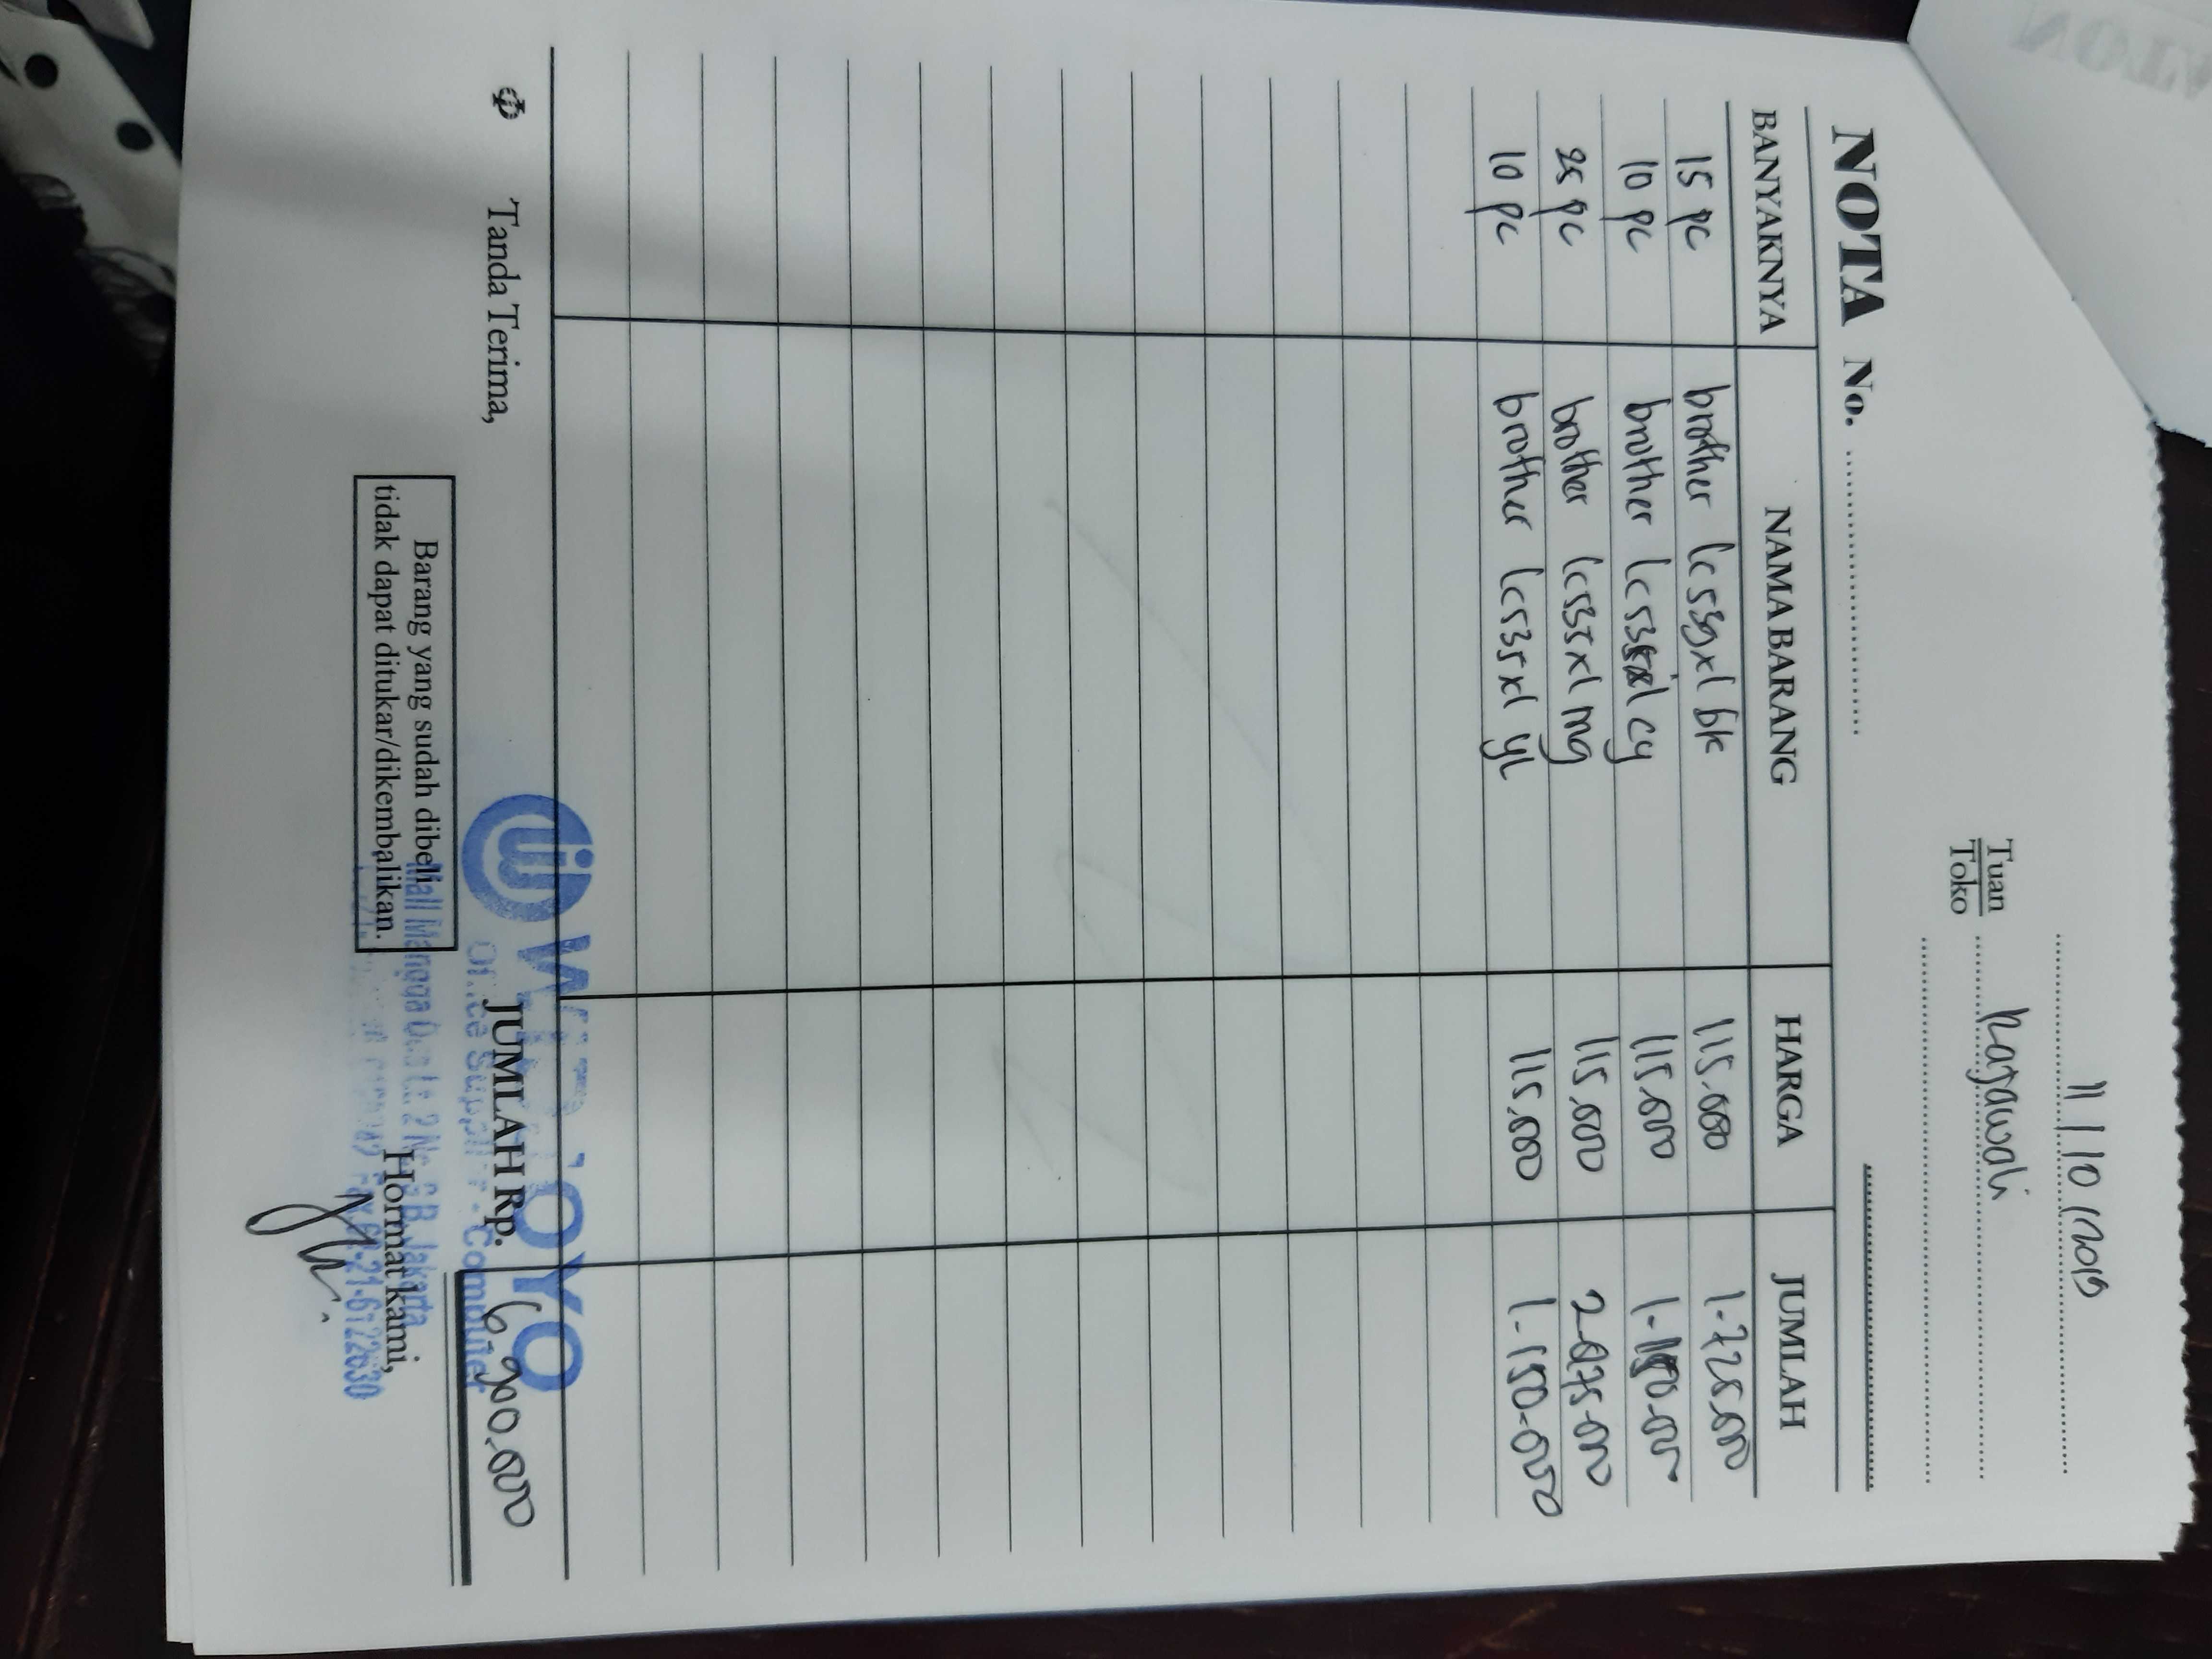 11/10/2019
Tuan
Toko
Rajawali
NOTA No.
BANYAKNYA NAMA BARANG HARGA JUMLAH
15 pc brother lc539xl bk 115.000 1.725.000
10 pc brother lc535xl cy 115.000 1.150.000
25 pc brother lc535xl mg 115.000 2.875.000
10 pc brother lc535xl yl 115.000 1.150.000
JUMLAH Rp. 6.900.000
Tanda Terima,
Hormat kami,
Barang yang sudah dibeli
tidak dapat ditukar/dikembalikan.
Office Supplier - Computer
Mall Mangga Dua Lt. 2 No. B. Jakarta